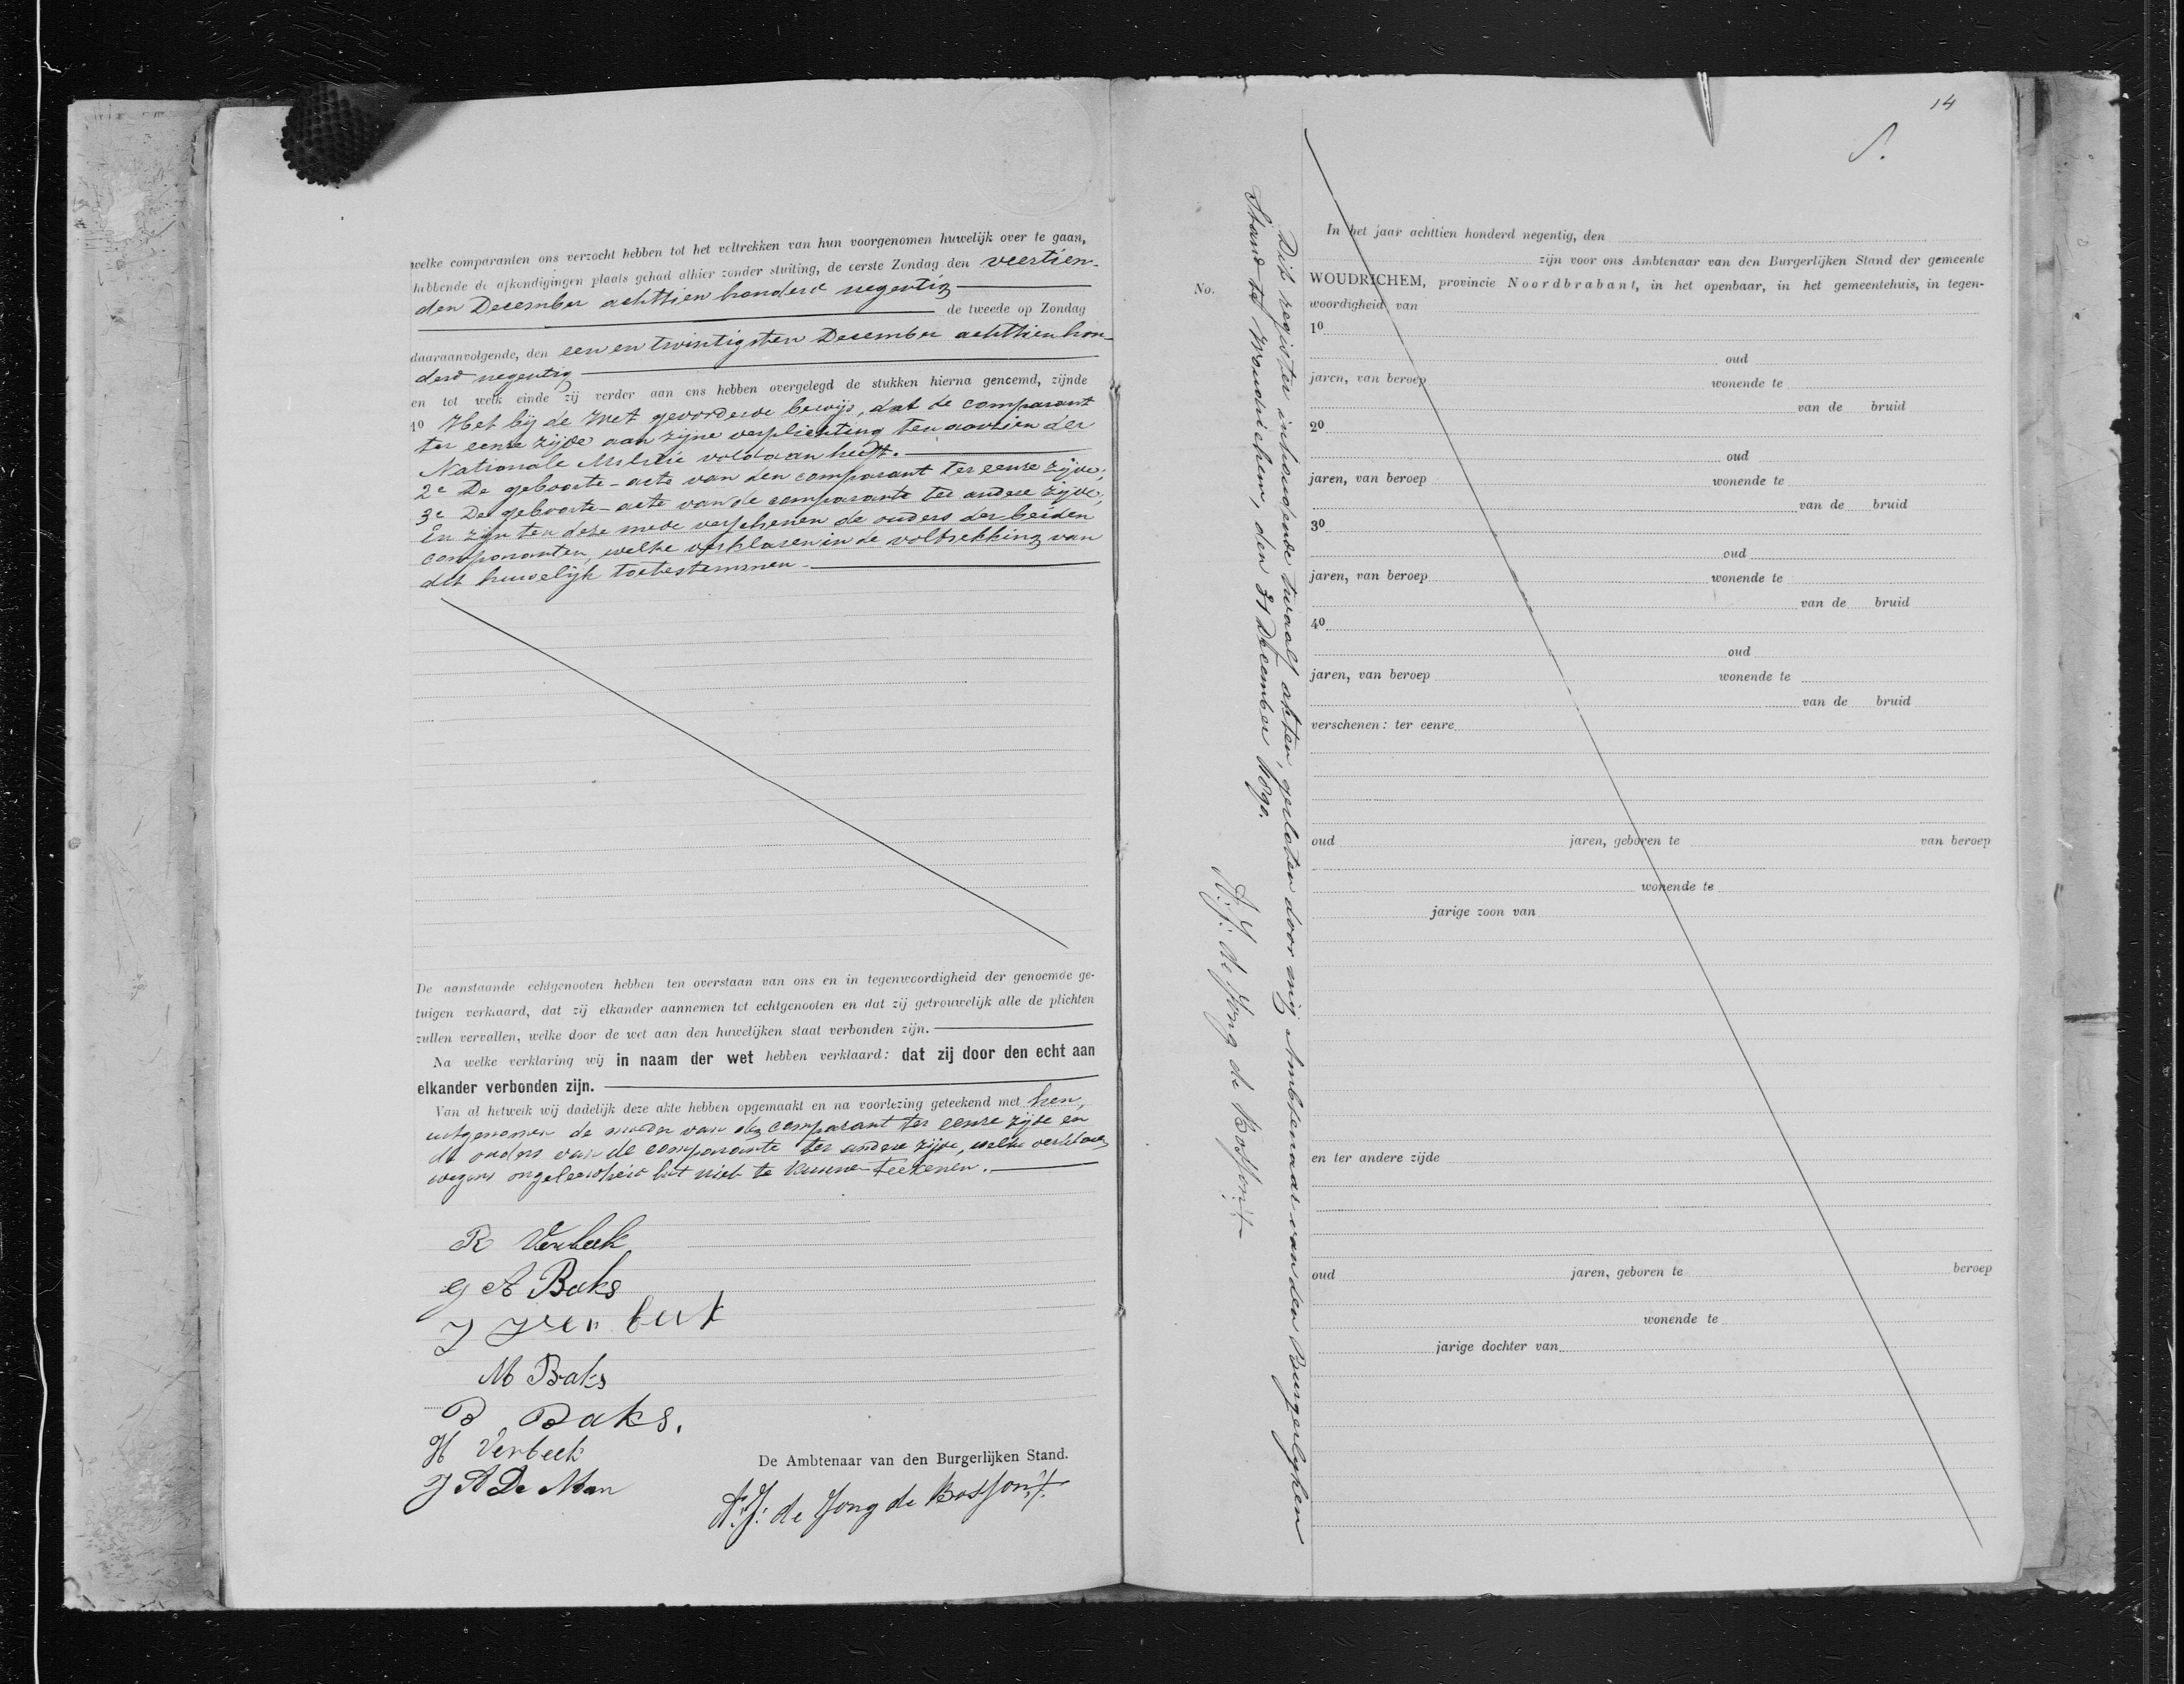 welke comparanten ons verzocht hebben tot het voltrekken van hun voorgenomen huwelijk over te gaan,
hebbende de afkondigingen plaats gehad alhier zonder stuiting, de eerste Zondag den veertien-
den December achttien honderd negentig
de tweede op Zondag
daaraanvolgende, den een en twintigsten December achttienhon-
derd negentig
en tot welk einde zij verder aan ons hebben overgelegd de stukken hierna genoemd, zijnde
1o Het bij de Wet gevorderde bewijs, dat de comparant
ter eenre zijde aan zijne verplichting ten aanzien der
Nationale Militie voldaan heeft.
2e De geboorte-acte van den comparant ter eenre zijde;
3e De geboorte-acte van de comparante ter andere zijde;
En zijn ten deze mede verschenen de ouders der beiden
comparanten, welke verklaren in de voltrekking van
dit huwelijk toetestemmen.
De aanstaande echtgenooten hebben ten overstaan van ons en in tegenwoordigheid der genoemde ge-
tuigen verklaard, dat zij elkander aannemen tot echtgenooten en dat zij getrouwelijk alle de plichten
zullen vervullen, welke door de wet aan den huwelijken staat verbonden zijn.
Na welke verklaring wij in naam der wet hebben verklaard: dat zij door den echt aan
elkander verbonden zijn.
Van al hetwelk wij dadelijk deze akte hebben opgemaakt en na voorlezing geteekend met hen,
uitgenomen de moeder van den comparant ter eenre zijde en
de ouders van de comparante ter andere zijde, welke verklaren
wegens ongeleerdheid het niet te kunnen teekenen.
R Verbeek
G A Baks
J Verbeek
M Baks
B Baks.
H Verbeek
J A De Man
De Ambtenaar van den Burgerlijken Stand.
A.J. de Jong de Bosson
14
No.
Dit register inhoudende twaalf akten, gesloten door mij Ambtenaar van den Burgerlijken
Stand te Woudrichem, den 31 December 1890.
A.J. de Jong de Bosson
In het jaar achttien honderd negentig, den
zijn voor ons Ambtenaar van den Burgerlijken Stand der gemeente
WOUDRICHEM, provincie Noordbrabant, in het openbaar, in het gemeentehuis, in tegen-
woordigheid van
1o
oud
jaren, van beroep wonende te
van de bruid
2o
oud
jaren, van beroep wonende te
van de bruid
3o
oud
jaren, van beroep wonende te
van de bruid
4o
oud
jaren, van beroep wonende te
van de bruid
verschenen: ter eenre
oud jaren, geboren te van beroep
wonende te
jarige zoon van
en ter andere zijde
oud jaren, geboren te beroep
wonende te
jarige dochter van